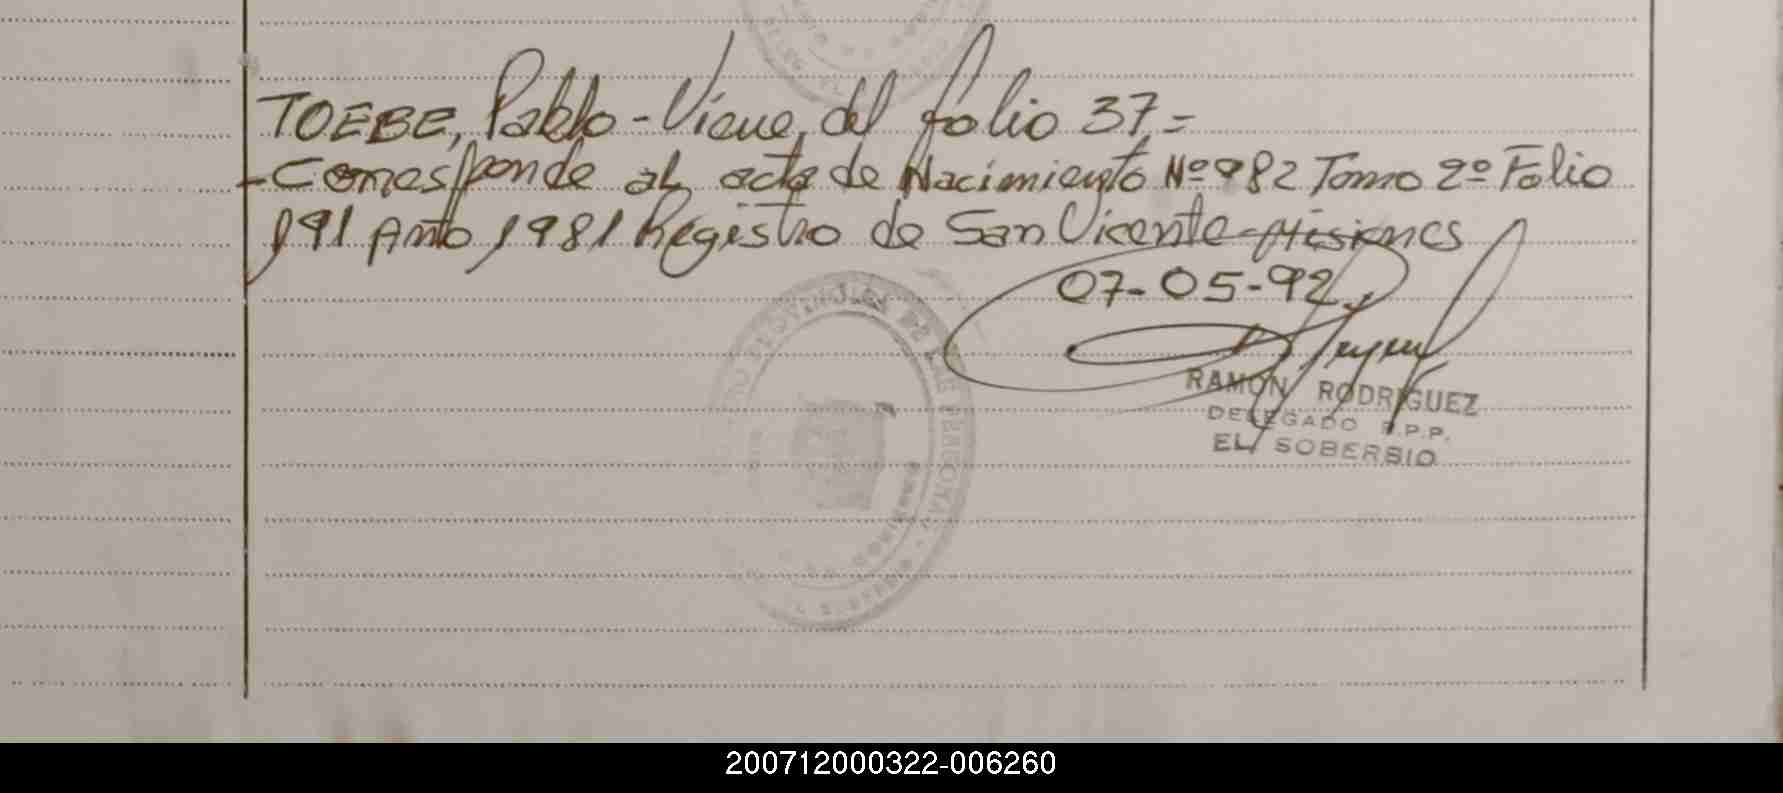 TOEBE, Pablo - Viene, del folio 37 =
- Corresponde al acta de Nacimiento Nº 982 Tomo 2º Folio
191 Año 1981 Registro de San Vicente - Misiones
07-05-92
RAMON RODRIGUEZ
DELEGADO R.P.P.
EL SOBERBIO
200712000322-006260